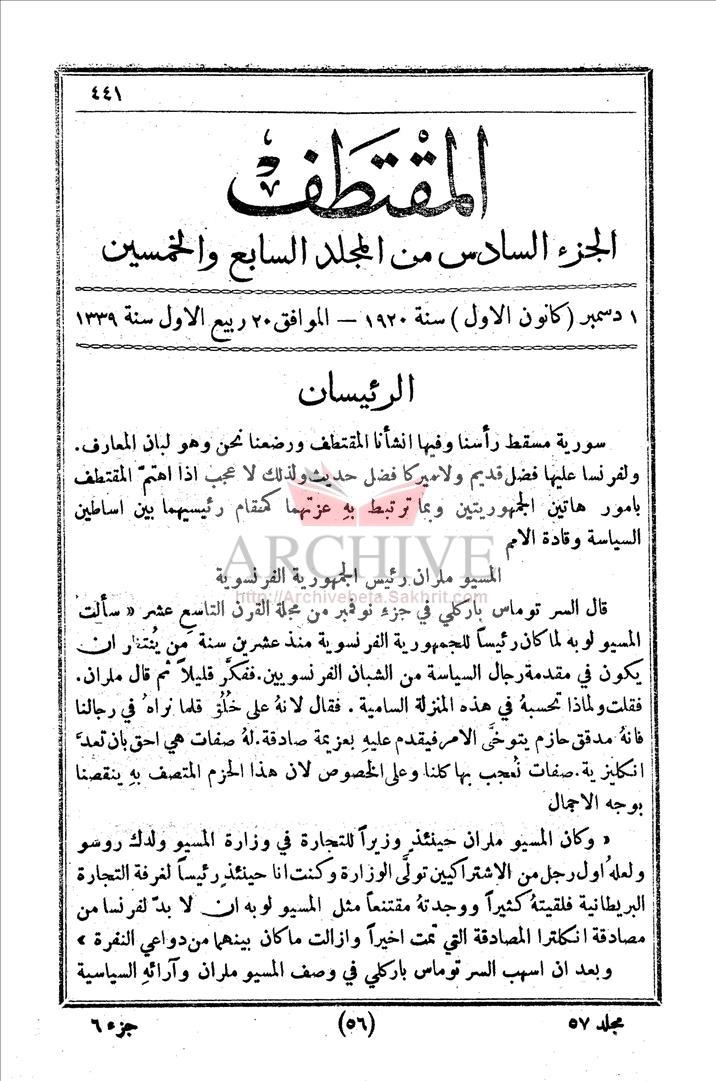 ٤٤١
المقْتَطَفْ
الجزء السادس من المجلد السابع والخمسين
١ دسمبر (كانون الاول) سنة ١٩٢٠ — الموافق ٢٠ ربيع الاول سنة ١٣٣٩
الرئيسان
سورية مسقط رأسنا وفيها انشأنا المقتطف ورضعنا نحن وهو لبان المعارف.
ولفرنسا عليها فضل قديم ولاميركا فضل حديث ولذلك لا عجب اذا اهتمّ المقتطف
بامور هاتين الجمهوريتين وبما ترتبط به عزتهما كمقام رئيسيهما بين اساطين
السياسة وقادة الامم
ARCHIVE
المسيو ملران رئيس الجمهورية الفرنسوية
http://Archivebeta.Sakhrit.com
قال السر توماس باركلي في جزء نوفمبر من مجلة القرن التاسع عشر « سألت
المسيو لوبه لما كان رئيساً للجمهورية الفرنسوية منذ عشرين سنة مَن يُنتظر ان
يكون في مقدمة رجال السياسة من الشبان الفرنسويين. ففكَّر قليلاً ثم قال ملران.
فقلت ولماذا تحسبهُ في هذه المنزلة السامية . فقال لانهُ على خُلُق قلما نراهُ في رجالنا
فانهُ مدقق حازم يتوخَّى الامر فيقدم عليهِ بعزيمة صادقة. لهُ صفات هي احق بان تعدَّ
انكليزية. صفات نُعجب بها كلنا وعلى الخصوص لان هذا الحزم المتصف بهِ ينقصنا
بوجه الاجمال
« وكان المسيو ملران حينئذٍ وزيراً للتجارة في وزارة المسيو ولدك روسو
ولعلهُ اول رجل من الاشتراكيين تولَّى الوزارة وكنت انا حينئذٍ رئيساً لغرفة التجارة
البريطانية فلقيتهُ كثيراً ووجدتهُ مقتنعاً مثل المسيو لوبه ان لا بدَّ لفرنسا من
مصادقة انكلترا المصادقة التي تمت اخيراً وازالت ما كان بينهما من دواعي النفرة »
وبعد ان اسهب السر توماس باركلي في وصف المسيو ملران وآرائهِ السياسية
مجلد ٥٧ (٥٦) جزء ٦